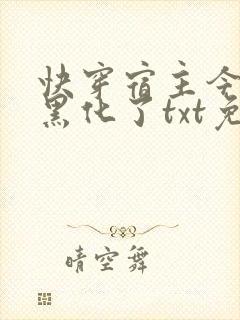 快穿宿主今
黑化了txt免
晴空舞